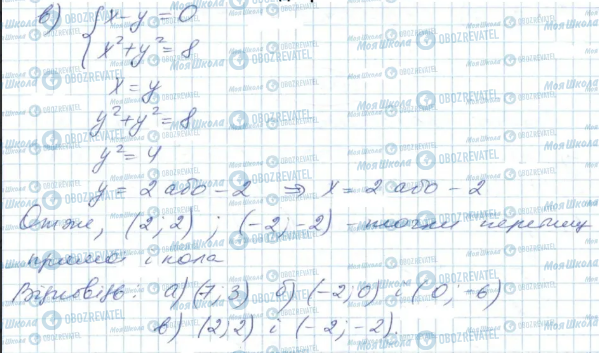 в) { x - y = 0
x² + y² = 8
x = y
y² + y² = 8
y² = 4
y = 2 або - 2 ⇒ x = 2 або - 2
Отже, (2; 2) ; (-2; -2) - точки перетину
прямої і кола
Відповідь: а) (7; 3) б) (-2; 0) і (0; -6)
в) (2; 2) і (-2; -2).